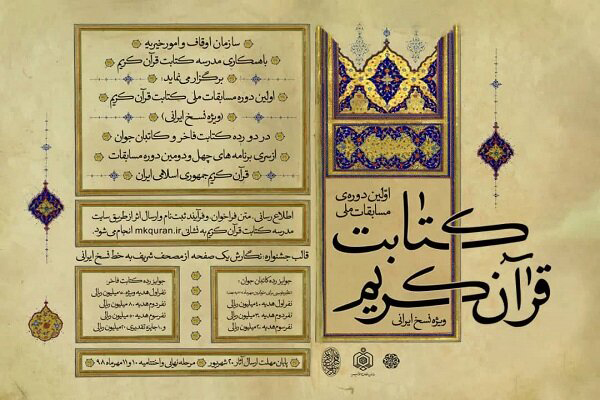 اولین دوره‌ی
مسابقات ملی
کتابت
قرآن کریم
ویژه نسخ ایرانی
سازمان اوقاف و امور خیریه
با همکاری مدرسه کتابت قرآن کریم
برگزار می‌نماید:
اولین دوره مسابقات ملی کتابت قرآن کریم
(ویژه نسخ ایرانی)
در دو رده کتابت فاخر و کاتبان جوان
از سری برنامه های چهل و دومین دوره مسابقات
قرآن کریم جمهوری اسلامی ایران
اطلاع رسانی، متن فراخوان، و فرآیند ثبت نام و ارسال اثر از طریق سایت
مدرسه کتابت قرآن کریم به نشانی mkquran.ir انجام می شود.
قالب جشنواره: نگارش یک صفحه از مصحف شریف به خط نسخ ایرانی
جوایز رده کاتبان جوان:
نفر اول هدیه ویژه ۴۰ میلیون ریالی
نفر دوم هدیه
نفر سوم هدیه
جوایز رده کتابت فاخر:
نفر اول هدیه ویژه
نفر دوم هدیه ۸۰ میلیون ریالی
نفر سوم هدیه
و ۱۰ جایزه تقدیری ۲۰ میلیون ریالی
پایان مهلت ارسال آثار ۲۰ شهریور
مرحله نهایی و اختتامیه ۱۰ و ۱۱ مهرماه ۹۸